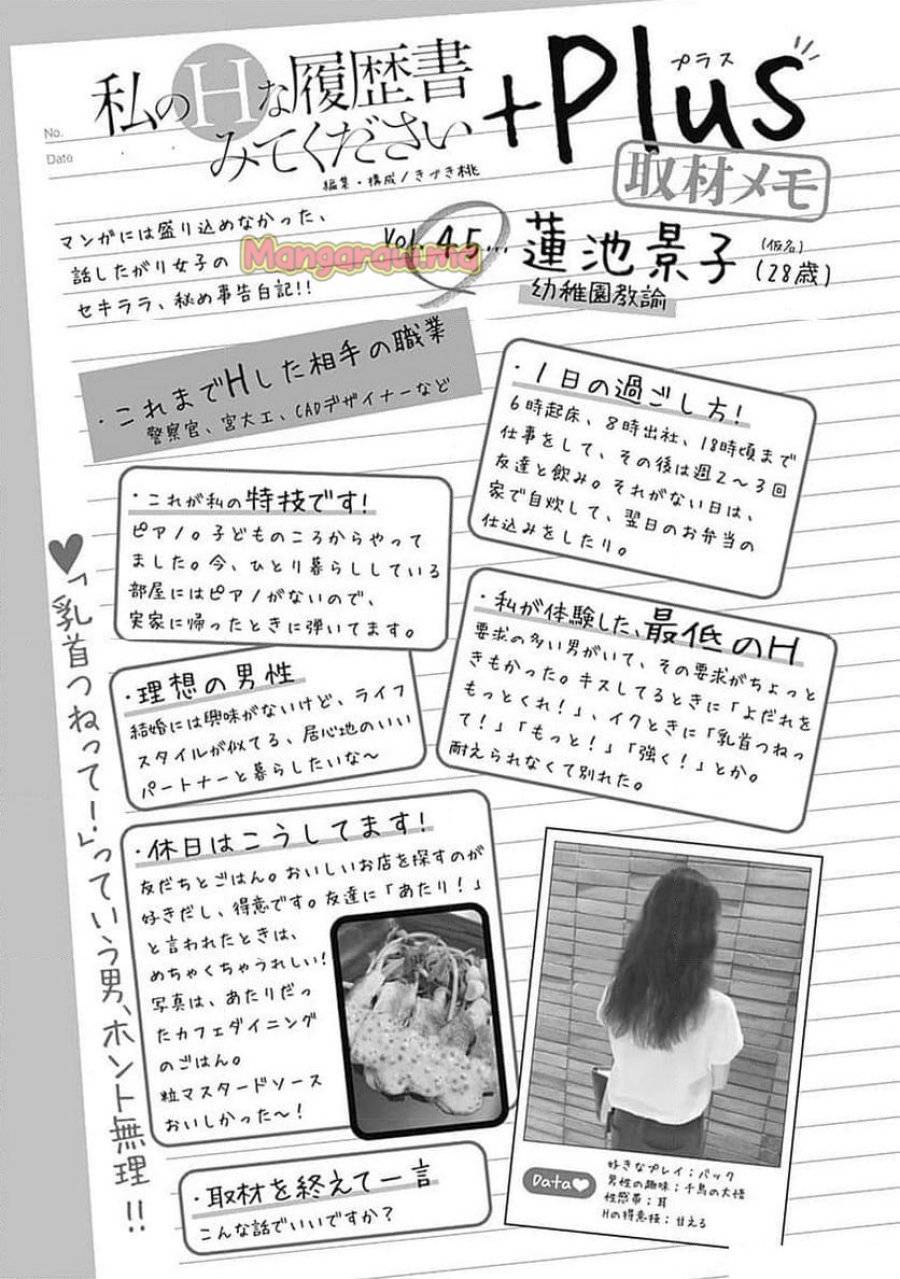 私のHな履歴書
みてください
+Plus
プラス
No.
Date
編集・構成/きづき桃
取材メモ
マンガには盛り込めなかった、
話したがり女子の
セキララ、秘め事告白記!!
Mangaraw.ma
Vol.45...
蓮池景子
(仮名)
(28歳)
幼稚園教諭
・これまでHした相手の職業
警察官、宮大工、CADデザイナーなど
・1日の過ごし方!
6時起床、8時出社、18時頃まで
仕事をして、その後は週2〜3回
友達と飲み。それがない日は、
家で自炊して、翌日のお弁当の
仕込みをしたり。
・これが私の特技です!
ピアノ。子どものころからやって
ました。今、ひとり暮らししている
部屋にはピアノがないので、
実家に帰ったときに弾いてます。
・私が体験した、最低のH
要求の多い男がいて、その要求がちょっと
きもかった。キスしてるときに「よだれを
もっとくれ!」、イクときに「乳首つねっ
て!」「もっと!」「強く!」とか。
耐えられなくて別れた。
・理想の男性
結婚には興味がないけど、ライフ
スタイルが似てる、居心地のいい
パートナーと暮らしたいな〜
♥「乳首つねって!」っていう男、ホント無理!!
・休日はこうしてます!
友だちとごはん。おいしいお店を探すのが
好きだし、得意です。友達に「あたり!」
と言われたときは、
めちゃくちゃうれしい!
写真は、あたりだっ
たカフェダイニング
のごはん。
粒マスタードソース
おいしかった〜!
・取材を終えて一言
こんな話でいいですか?
Data♥
好きなプレイ:バック
男性の趣味:千鳥の大悟
性感帯:耳
Hの得意技:甘える